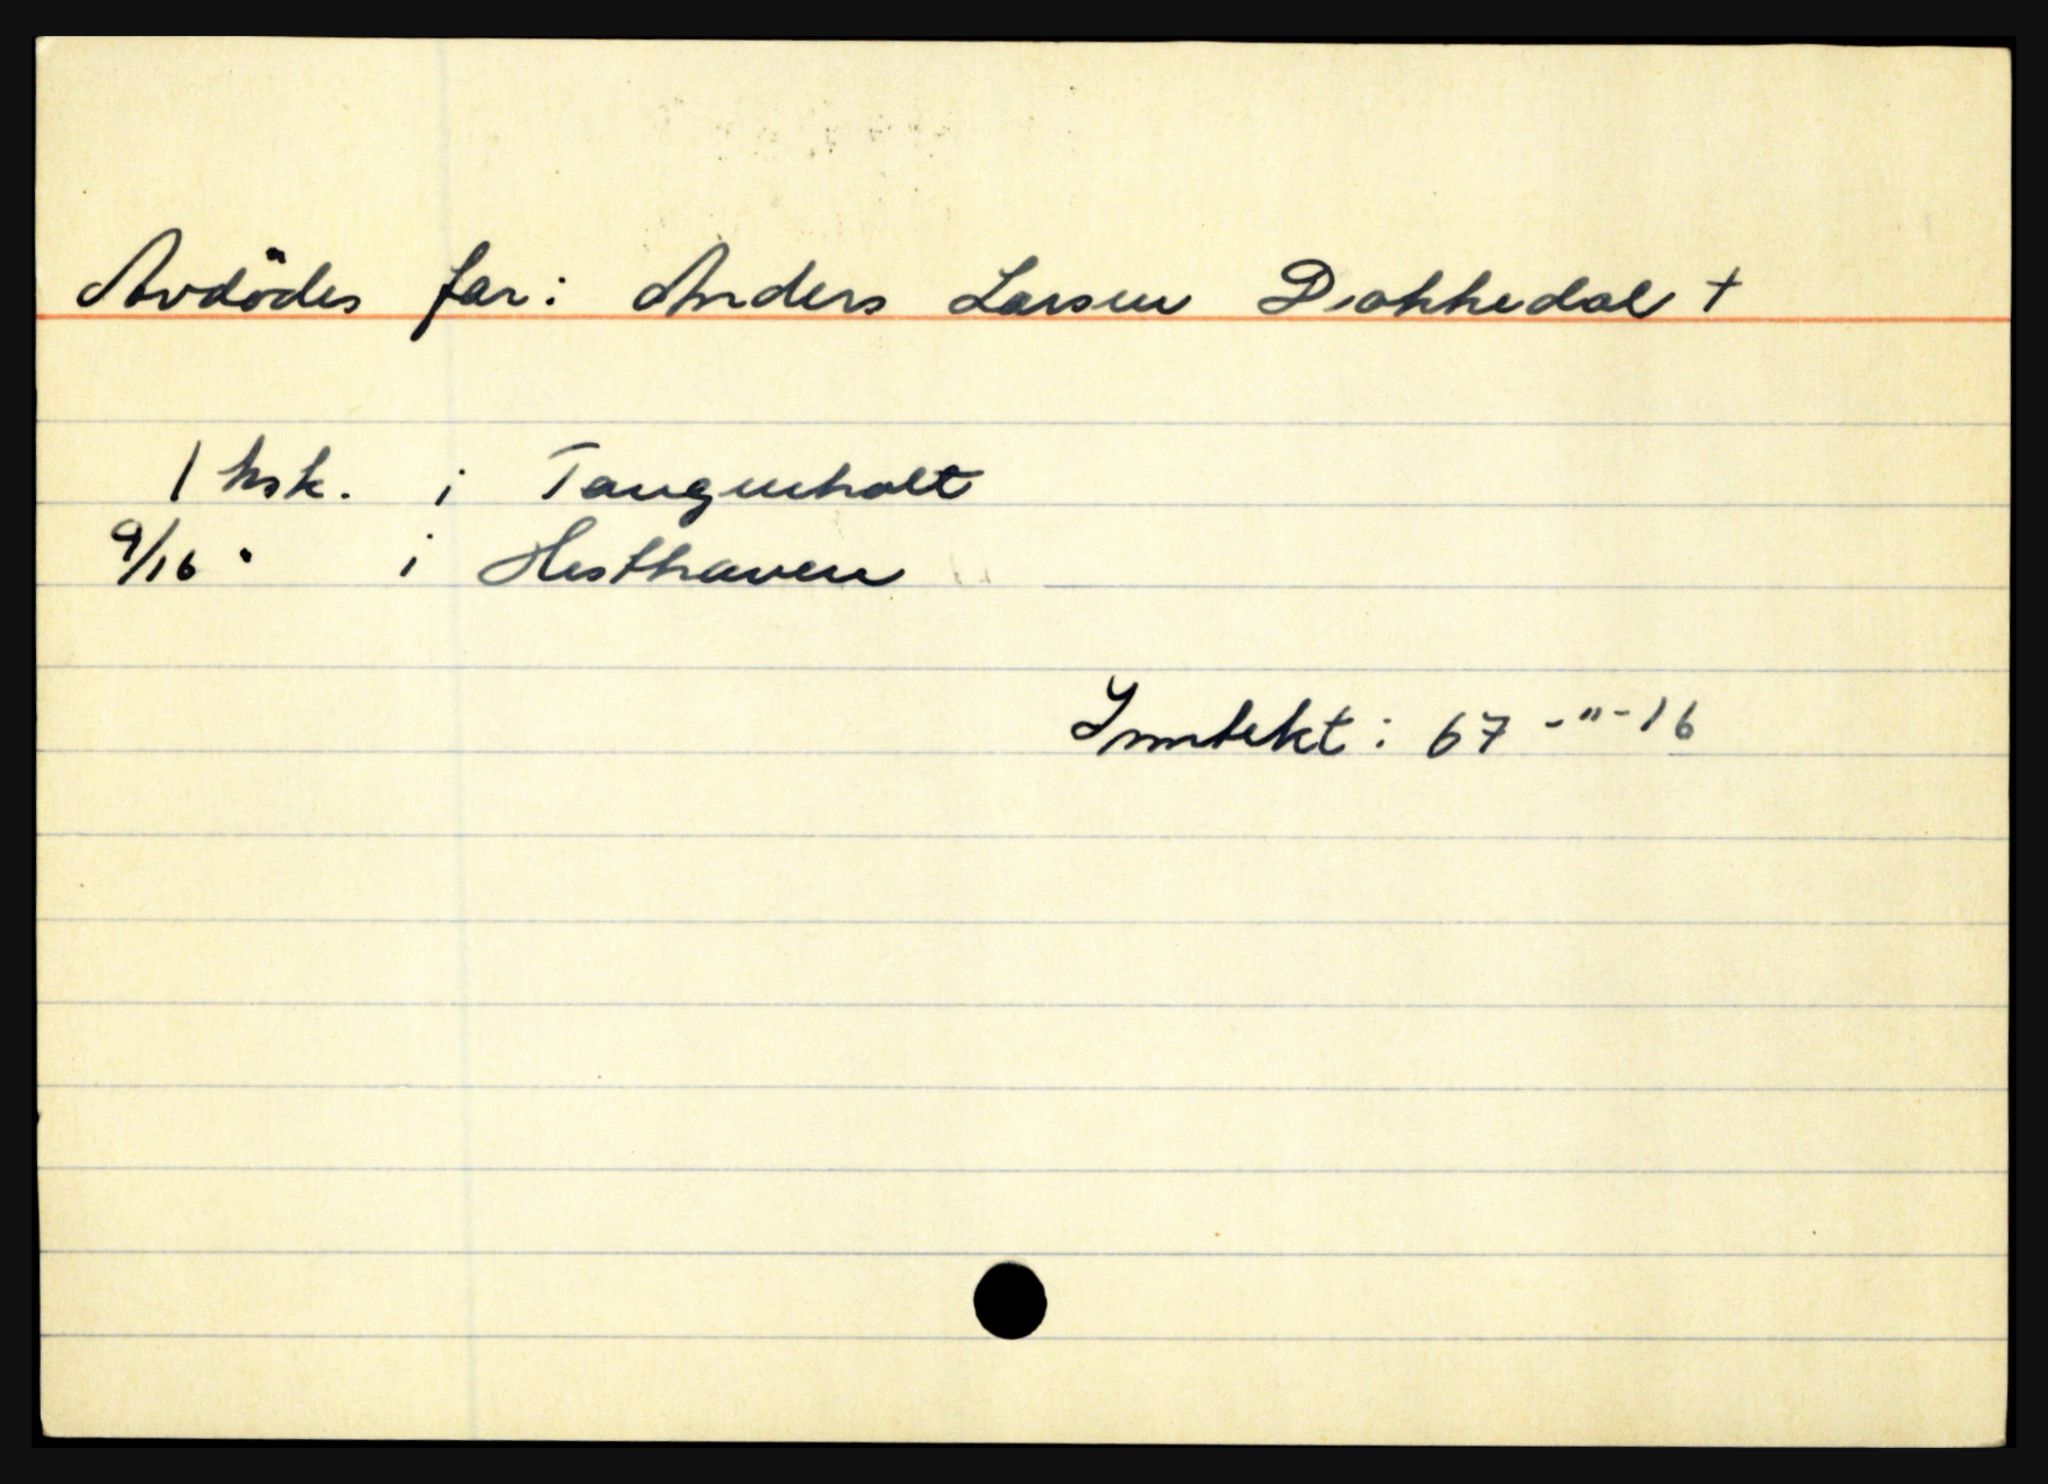 Avdödes far: Anders Larsen Drakkedal +
1 hsk. i Tangenholt
9/16 " i Hesthaven
Inntekt: 67 -"- 16